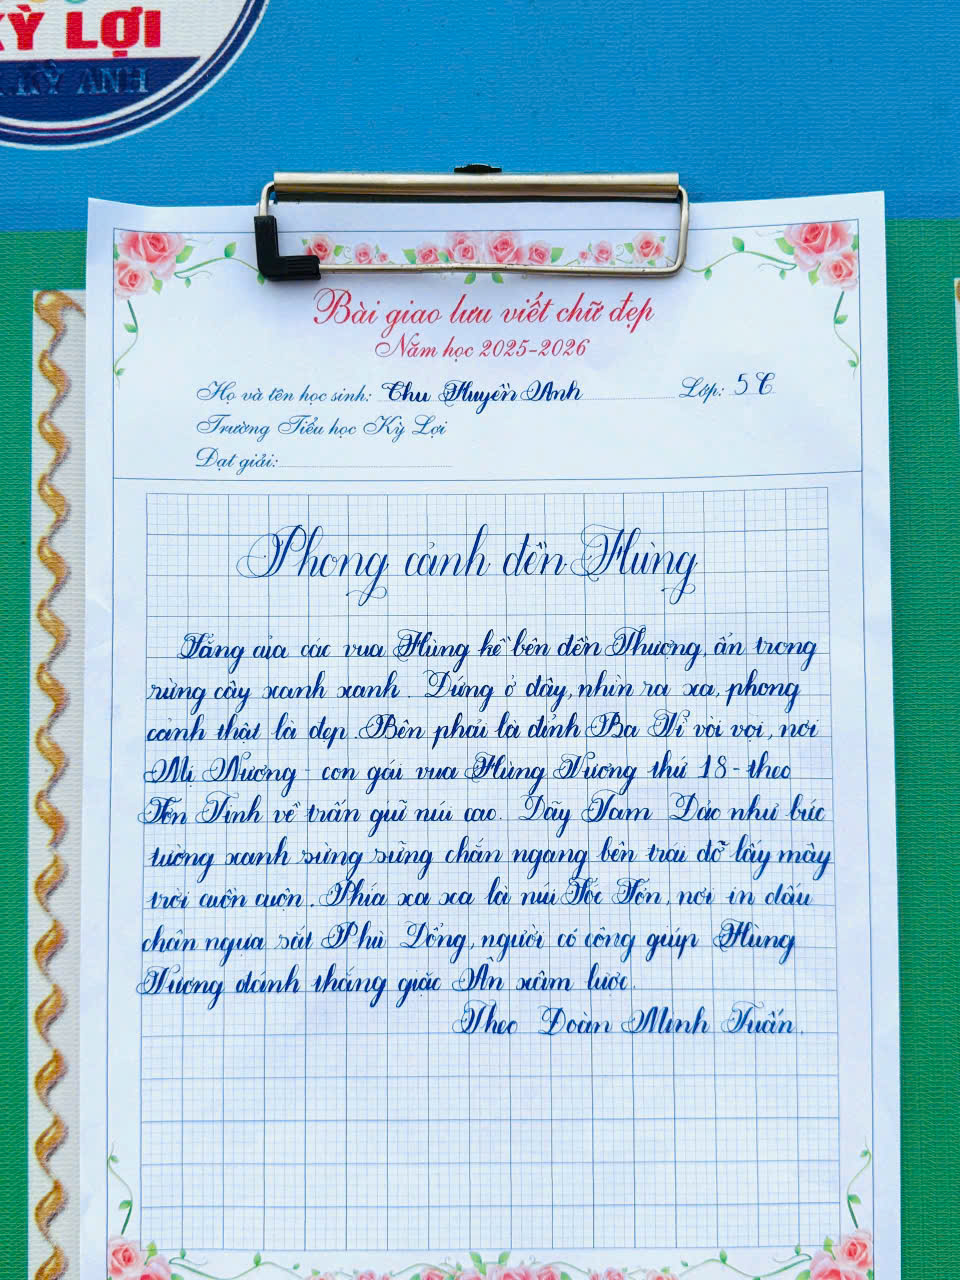 KỲ LỢI
KỲ ANH
Bài giao lưu viết chữ đẹp
Năm học 2025-2026
Họ và tên học sinh: Chu Huyền Anh Lớp: 5C
Trường Tiểu học Kỳ Lợi
Đạt giải:
Phong cảnh đền Hùng
Lăng của các vua Hùng kề bên đền Thượng, ẩn trong
rừng cây xanh xanh. Đứng ở đây, nhìn ra xa, phong
cảnh thật là đẹp. Bên phải là đỉnh Ba Vì vòi vọi, nơi
Mị Nương - con gái vua Hùng Vương thứ 18 - theo
Sơn Tinh về trấn giữ núi cao. Dãy Tam Đảo như bức
tường xanh sừng sừng chắn ngang bên trái đỡ lấy mây
trời cuồn cuộn. Phía xa xa là núi Sóc Sơn, nơi in dấu
chân ngựa sắt Phù Đổng, người có công giúp Hùng
Vương đánh thắng giặc Ân xâm lược.
Theo Đoàn Minh Tuấn.